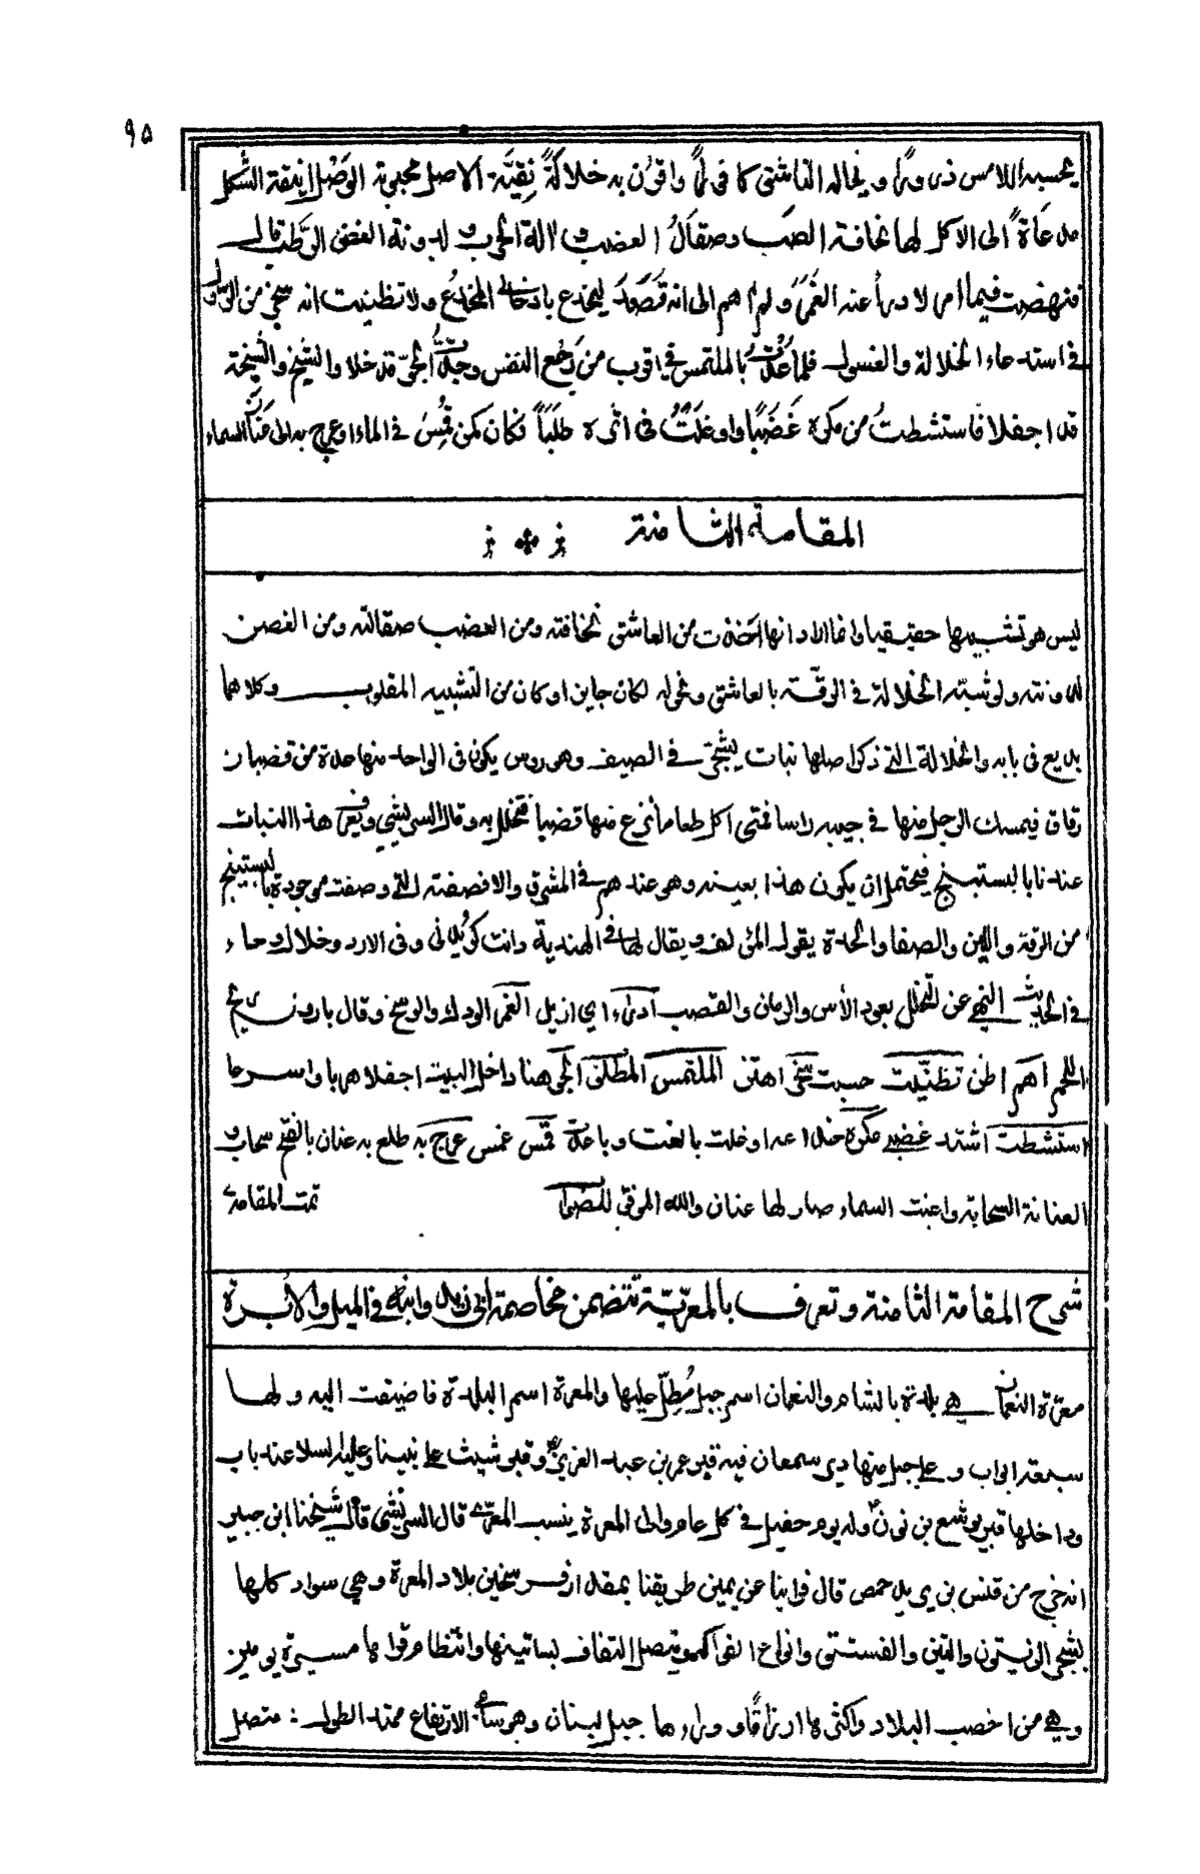 ٩٥
يحسبه اللامس ذرورًا ويخاله الناشق كافورًا واقرن به خلالةً نقيّة الاصل محبوبة الوصل انيقة الشكل
مدعاةً الى الاكل لها نحافة الصب وصقال العضب و الة الحرب و لدونة الغصن الرّطب قال
فنهضت فيما امر لادرأ عنه الغَمَر ولم اهم الى انه قصد ليخدع بادخالي المخدع ولا تظنيت انه سخر من الرّسول
في استدعاء الخلالة والغسول فلما عدت بالملتمس في اقرب من رجع النفس وجدت الجوّ قد خلا والشيخ والشيخة
قد اجفلا فاستشطت من مكره غضبًا واوغلت في اثره طلبًا فكان كمن قُمِسَ في الماء او عرج به الى عنان السماء
المقامة الثامنة
ليس هو تشبيها حقيقيا وانما اراد انها اخذت من العاشق نحافته ومن العضب صقالته ومن الغصن
لدونته ولو شبّه الخلالة في الرقّة بالعاشق ونحوله لكان جايزا وكان من التشبيه المقلوب وكلاهما
بديع في بابه والخلالة التي ذكر اصلها نبات يشجّر في الصيف وهو روس يكون في الواحد منها حدة من قضبان
رقاق فيمسك الرجل منها في جيبه راسا فمتى اكل طعاما نزع منها قضيبا فتخلل به وقال الشريشي ويعرف هذا النبات
عندنا بالبستينج فيحتمل ان يكون هذا بعينه وهو عندهم في المشرق والافصفته التي وصفت موجودة بالبستينج
من الرقة واللين والصفا والحدة يقول المؤلف ويقال لها في الهندية دانت كريلني وفي الارد وخلال وجاء
في الحديث النهي عن التخلل بعود الأس والرمان والقصب ادرأ اي ازيل الغمر الودك والوسخ وقال بارونسيخ
اللحم اهم اظن تظنّيت حسبت سخر اهتز الملتمس المطلق الجو هنا داخل البيت اجفلا هربا واسرعا
استشطت اشتد غضبي مكره خداعه اوغلت بالغت وباعدت قمس غمس عرج به طلع به عنان بالفتح سحاب و
العنانة السحابة واعنت السماء صار لها عنان والله الموفق للصواب تمت المقامة
شرح المقامة الثامنة وتعرف بالمعرّيّة تتضمن مخاصمة ابي زيد وابنه في الميل والابرة
معرّة النعمان هي بلدة بالشام والنعمان اسم جبل مُطِلّ عليها والمعرة اسم البلدة فاضيفت اليه ولها
سبعة ابواب و على جبل منها دير سمعان فيه قبر عمر بن عبد العزيز وقبر شيث على نبينا وعليه السلام عند باب
وداخلها قبر يوشع بن نون وله يوم حفيل في كل عام والى المعرة ينسب المعرّي قال الشريشي قال شيخنا ابن جبير
انه خرج من قنسرين يريد حمص قال فراينا عن يمين طريقنا بمقدار فرسخين بلاد المعرة وهي سواد كلها
بشجر الزيتون والتين والفستق وانواع الفواكه ويتصل التفاف بساتينها وانتظام قراها مسيرة يومين
وهي من اخصب البلاد واكثرها ارزاقًا و وراءها جبل لبنان وهو سامي الارتفاع ممتد الطول : متصل